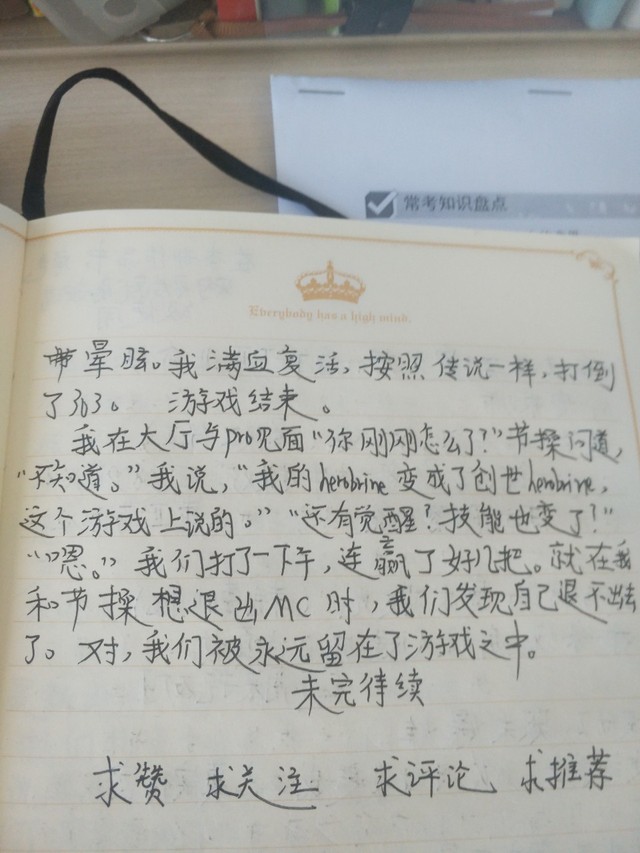 常考知识盘点
Everybody has a high mind.
带晕眩。我满血复活，按照传说一样，打倒
了303。 游戏结束。
我在大厅与pro见面“你刚刚怎么了？”节操问道，
“不知道。”我说，“我的herobrine变成了创世herobrine，
这个游戏上说的。”“还有觉醒？技能也变了！”
“嗯。”我们打了一下午，连赢了好几把。就在我
和节操想退出MC时，我们发现自己退不出去
了。对，我们被永远留在了游戏之中。
未完待续
求赞 求关注 求评论 求推荐